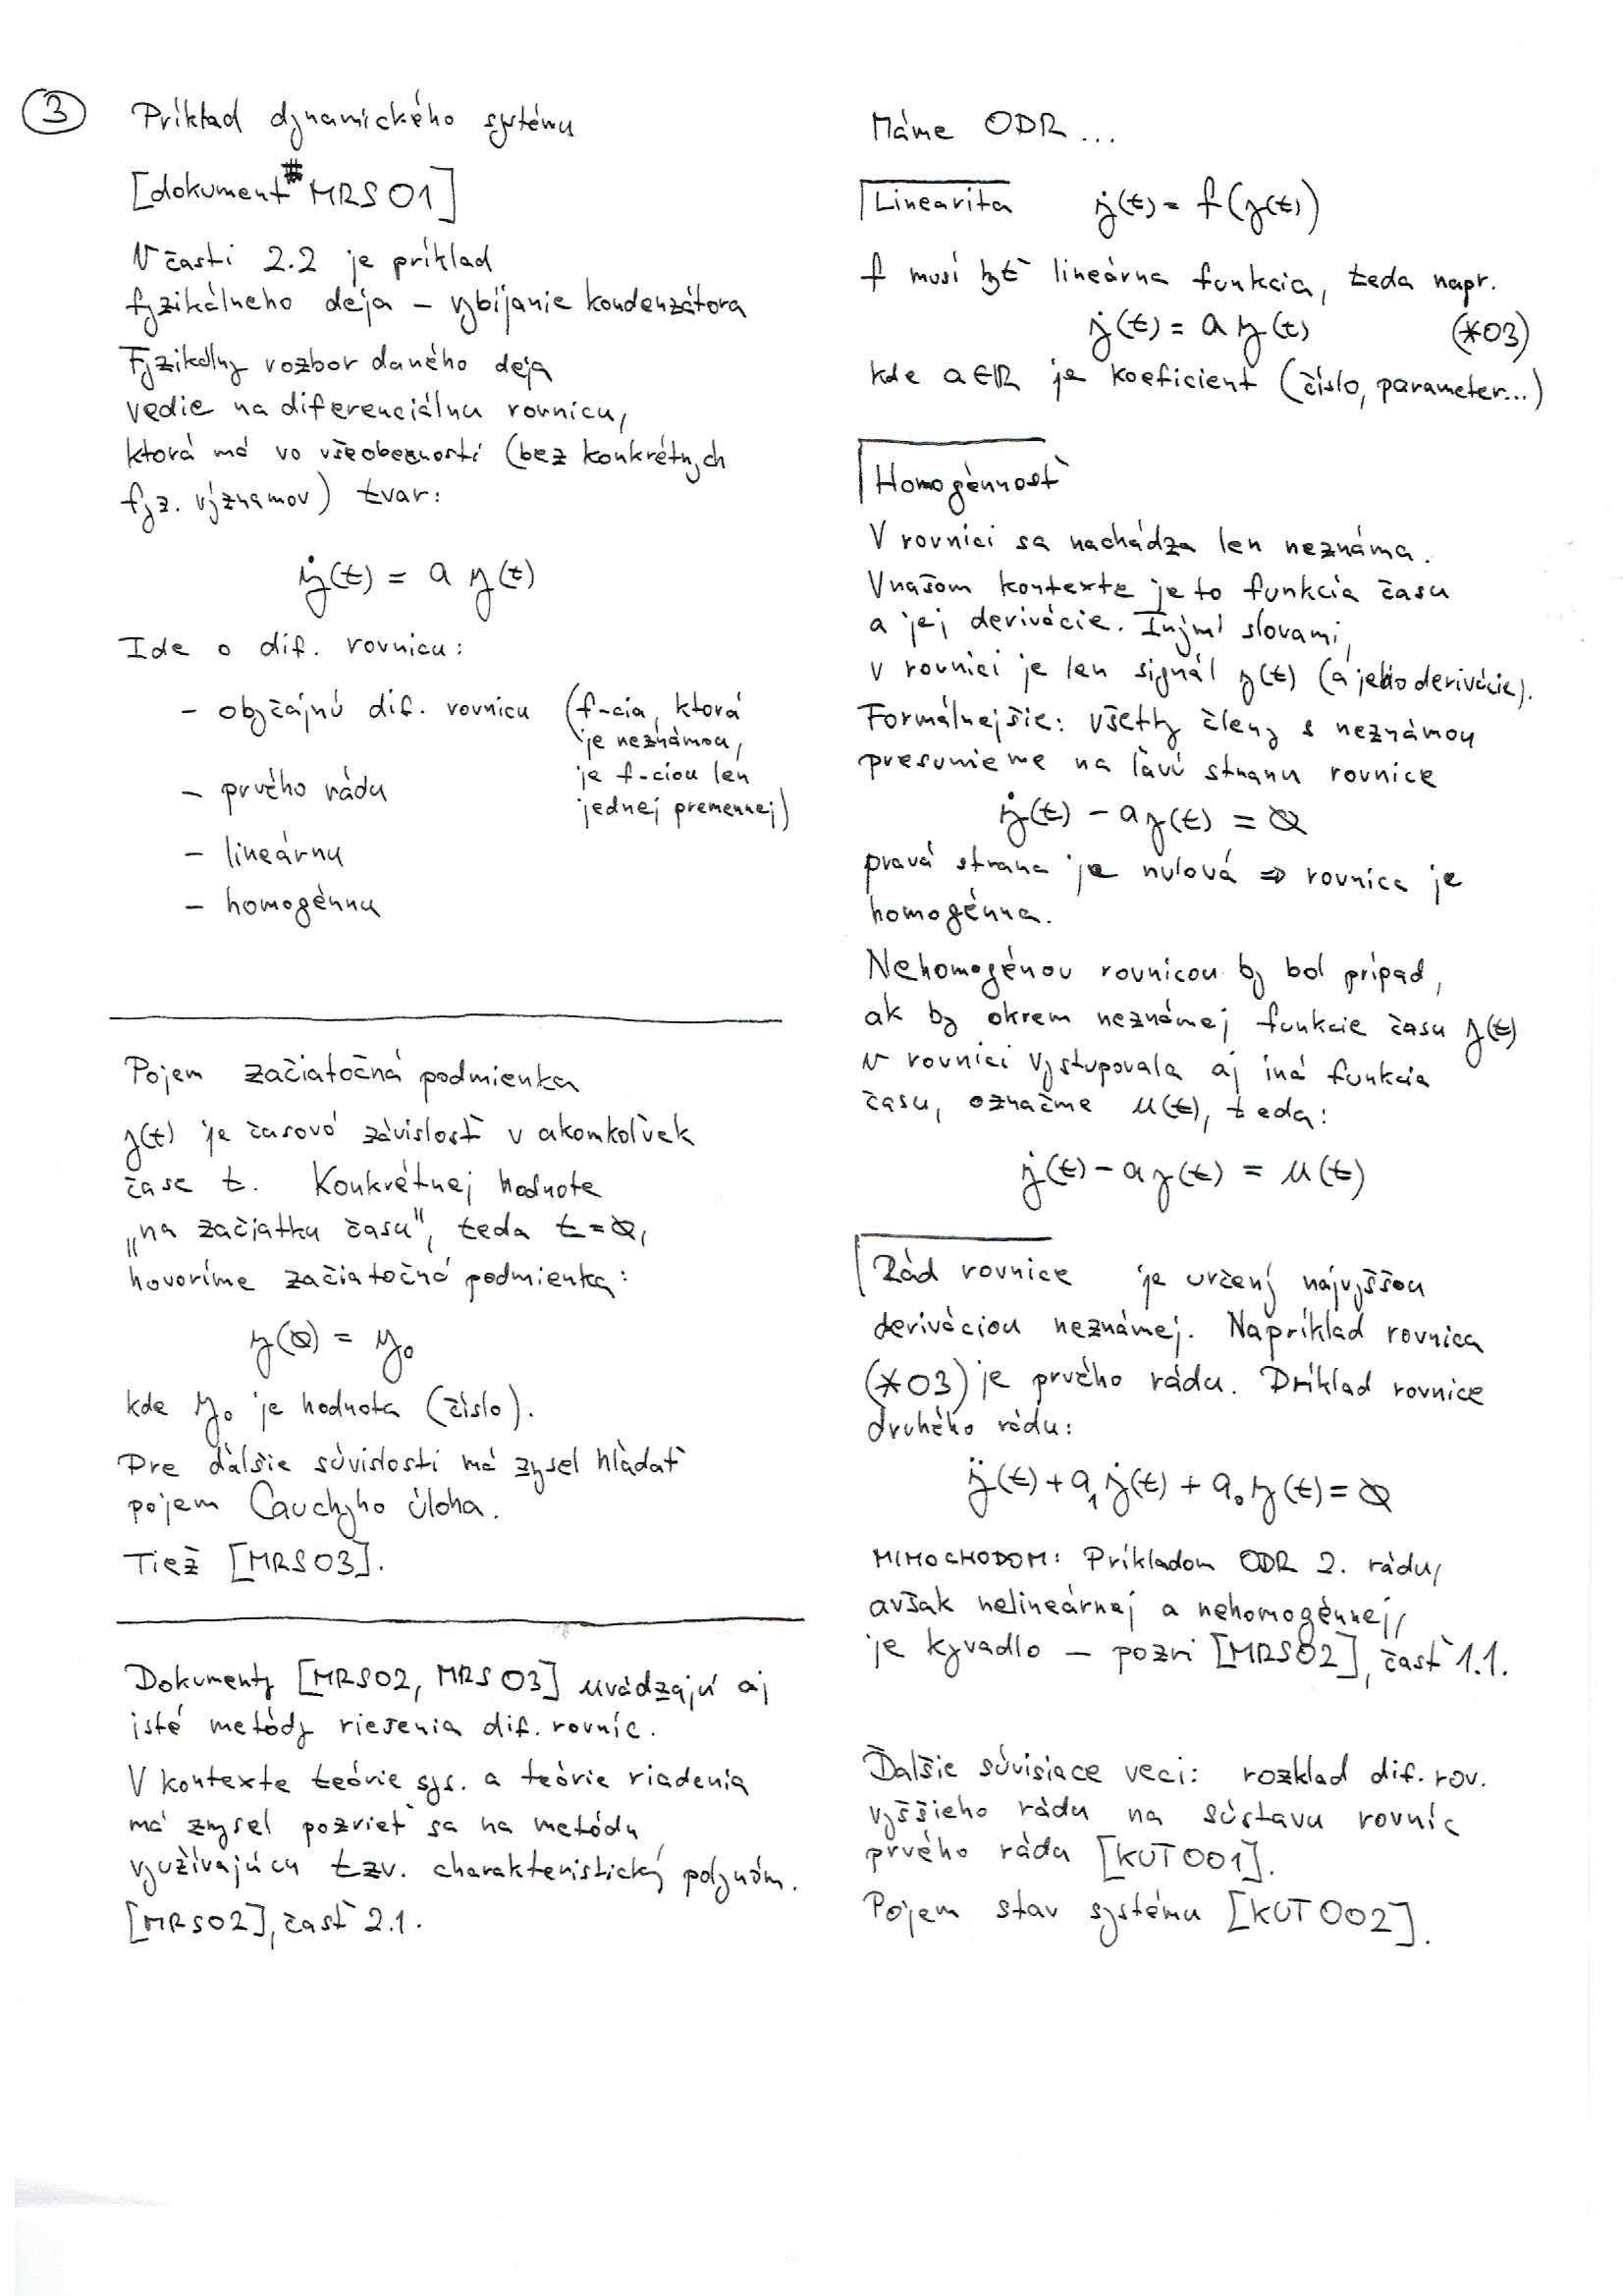 3
Príklad dynamického systému
[dokument MRS01]
V časti 2.2 je príklad
fyzikálneho deja – vybíjanie kondenzátora
Fyzikálny rozbor daného deja
vedie na diferenciálnu rovnicu,
ktorá má vo všeobecnosti (bez konkrétnych
fyz. významov) tvar:
ẏ(t) = a y(t)
Ide o dif. rovnicu:
– obyčajnú dif. rovnicu (f-cia, ktorá
je neznámou,
je f-ciou len
jednej premennej)
– prvého rádu
– lineárnu
– homogénnu
Pojem začiatočná podmienka
y(t) je časová závislosť v akomkoľvek
čase t. Konkrétnej hodnote
„na začiatku času", teda t=0,
hovoríme začiatočná podmienka:
y(0) = y₀
kde y₀ je hodnota (číslo).
Pre ďalšie súvislosti má zysel hľadať
pojem Cauchyho úloha.
Tiež [MRS03].
Dokumenty [MRS02, MRS03] uvádzajú aj
isté metódy riešenia dif. rovníc.
V kontexte teórie sys. a teórie riadenia
má zmysel pozrieť sa na metódu
využívajúcu tzv. charakteristický polynóm.
[MRS02], časť 2.1.
Máme ODR ...
Linearita ẏ(t) = f(y(t))
f musí byť lineárna funkcia, teda napr.
ẏ(t) = a y(t) (*03)
kde a∈ℝ je koeficient (číslo, parameter...)
Homogénnosť
V rovnici sa nachádza len neznáma.
V našom kontexte je to funkcia času
a jej derivácie. Inými slovami,
v rovnici je len signál y(t) (a jeho derivácie).
Formálnejšie: všetky členy s neznámou
presunieme na ľavú stranu rovnice
ẏ(t) – a y(t) = 0
pravá strana je nulová ⇒ rovnica je
homogénna.
Nehomogénou rovnicou by bol prípad,
ak by okrem neznámej funkcie času y(t)
v rovnici vystupovala aj iná funkcia
času, označme u(t), teda:
ẏ(t) – a y(t) = u(t)
Rád rovnice je určený najvyššou
deriváciou neznámej. Napríklad rovnica
(*03) je prvého rádu. Príklad rovnice
druhého rádu:
ÿ(t) + a₁ ẏ(t) + a₀ y(t) = 0
MIMOCHODOM: Príkladom ODR 2. rádu,
avšak nelineárnej a nehomogénnej,
je kyvadlo – pozri [MRS02], časť 1.1.
Ďalšie súvisiace veci: rozklad dif. rov.
vyššieho rádu na sústavu rovníc
prvého rádu [KUT001].
Pojem stav systému [KUT002].